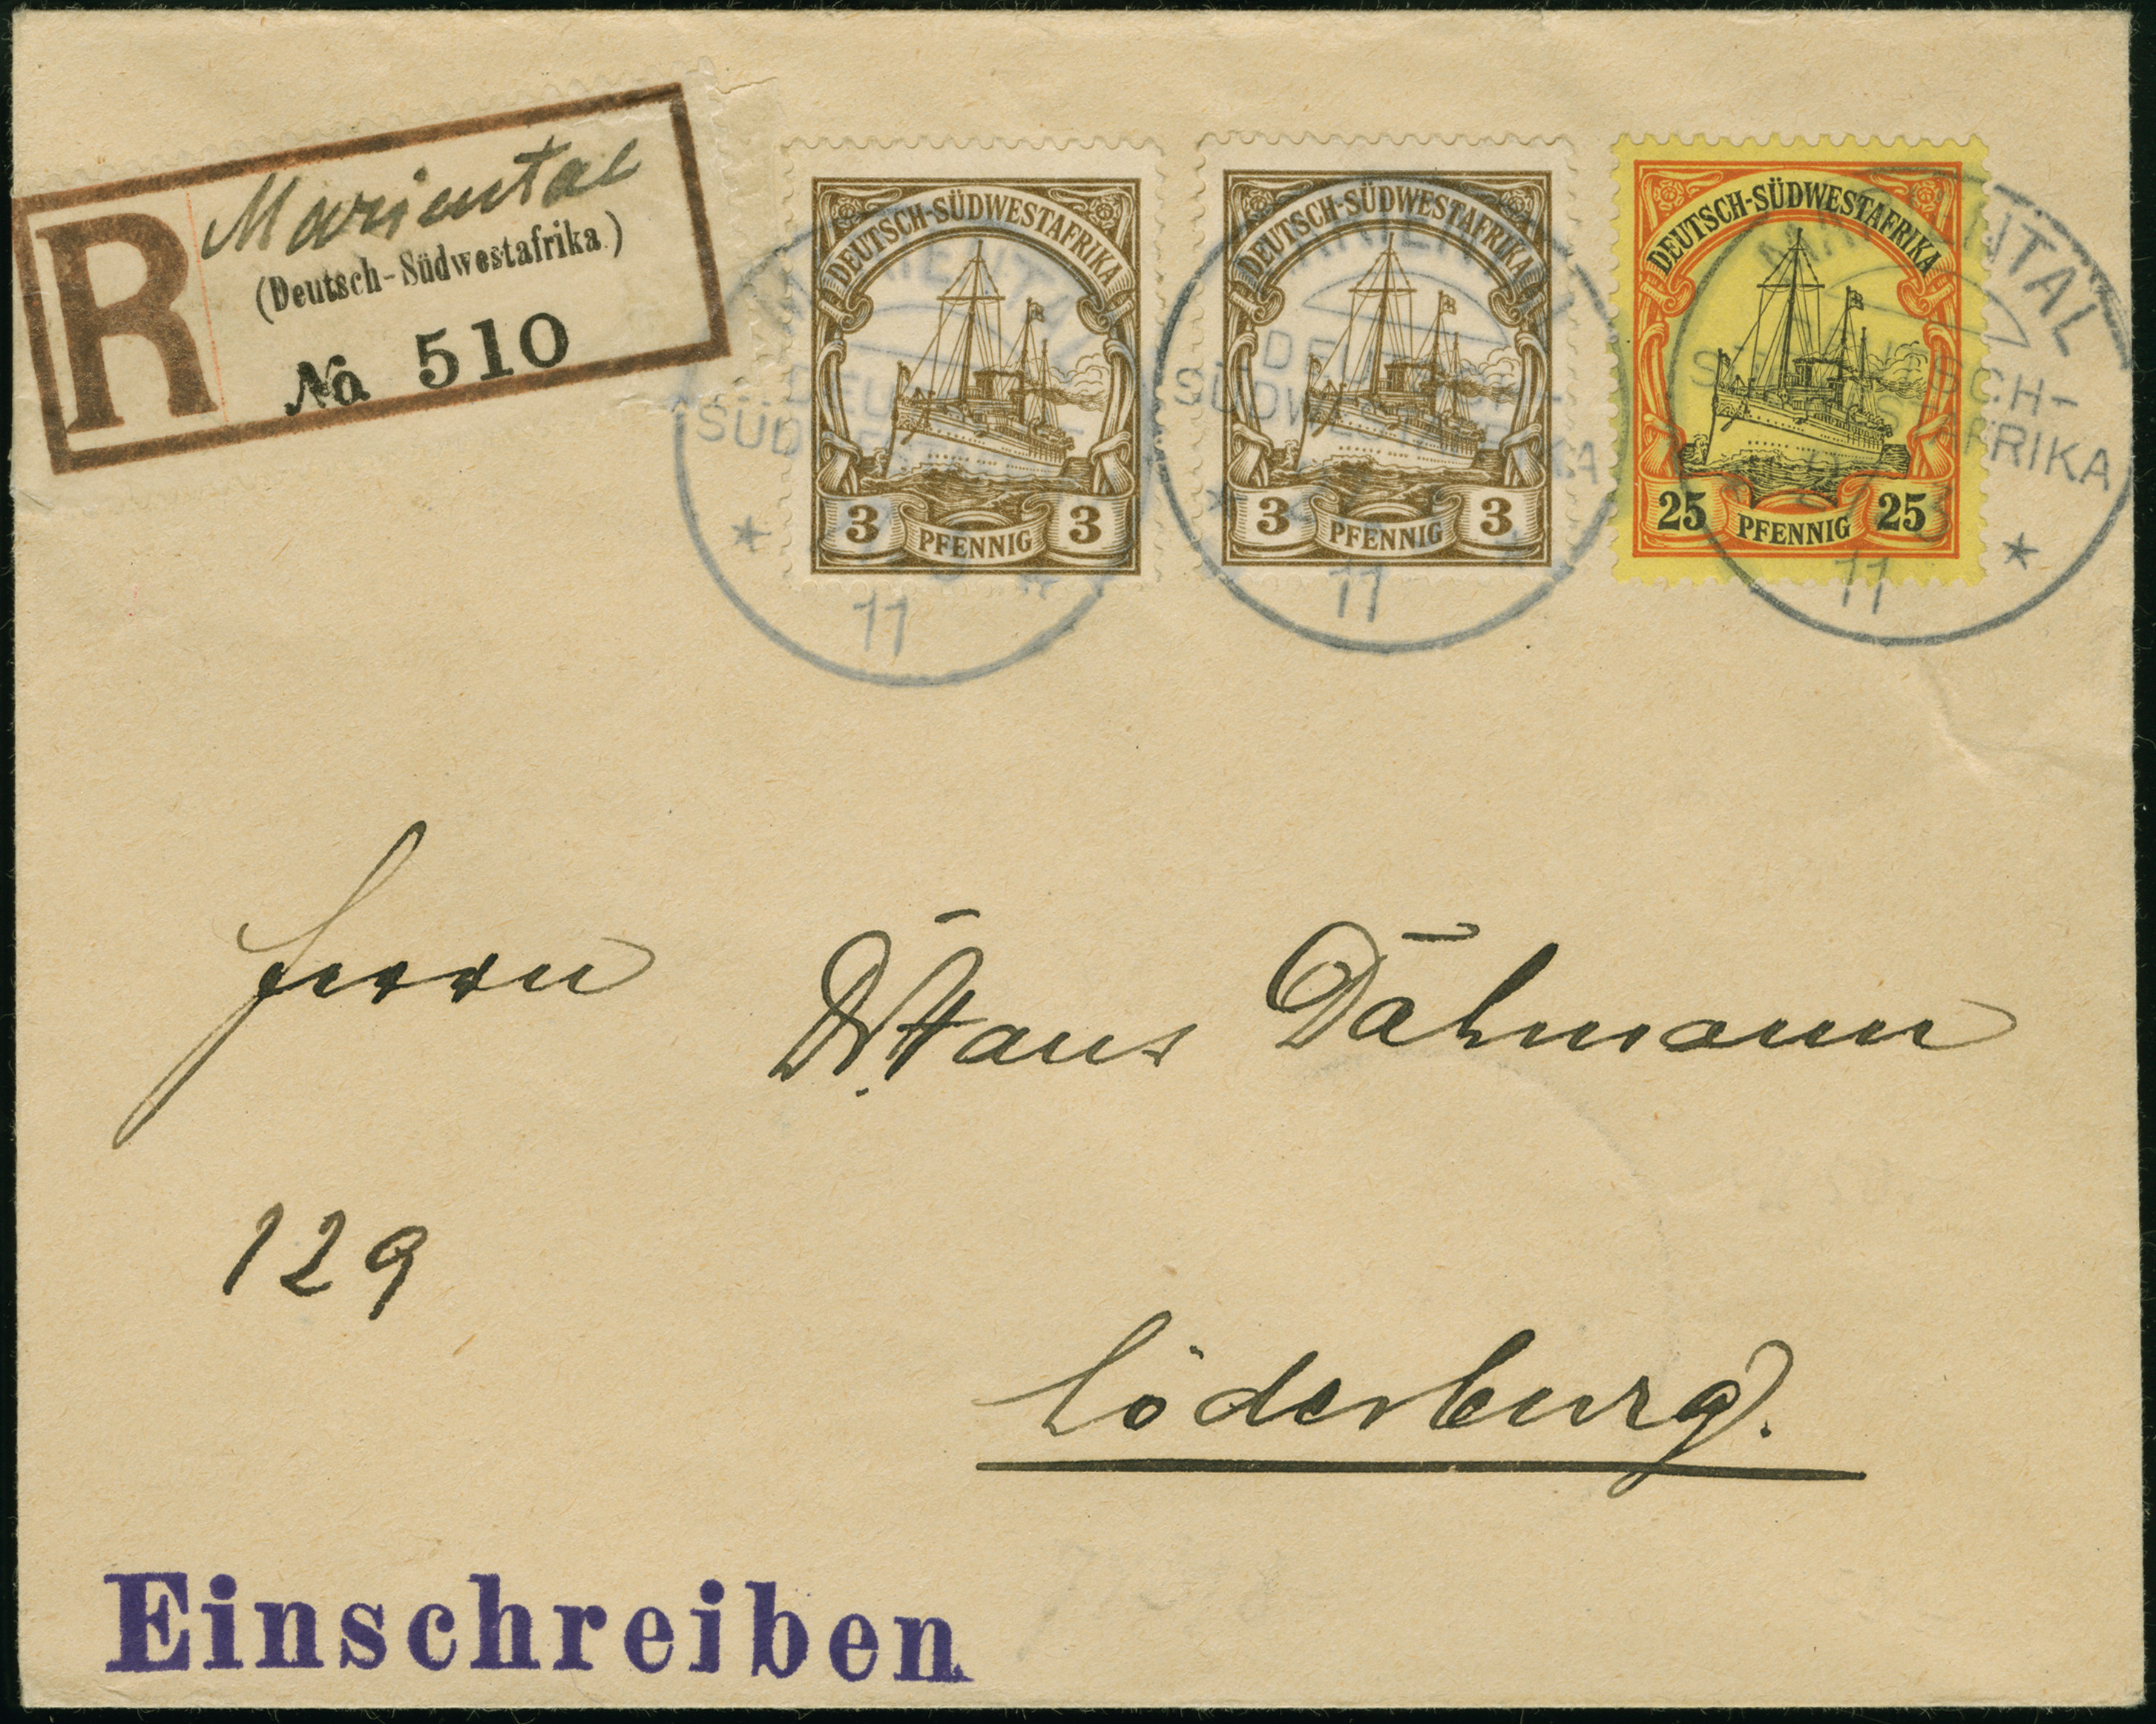 R
Mariental
(Deutsch-Südwestafrika)
No 510
DEUTSCH-SÜDWESTAFRIKA
3 PFENNIG 3
DEUTSCH-SÜDWESTAFRIKA
3 PFENNIG 3
DEUTSCH-SÜDWESTAFRIKA
25 PFENNIG 25
MARIENTAL
DEUTSCH-
SÜDWESTAFRIKA
11
MARIENTAL
DEUTSCH-
SÜDWESTAFRIKA
11
MARIENTAL
DEUTSCH-
SÜDWESTAFRIKA
11
Herrn Dr. Hans Dähmann
129
Löderburg.
Einschreiben